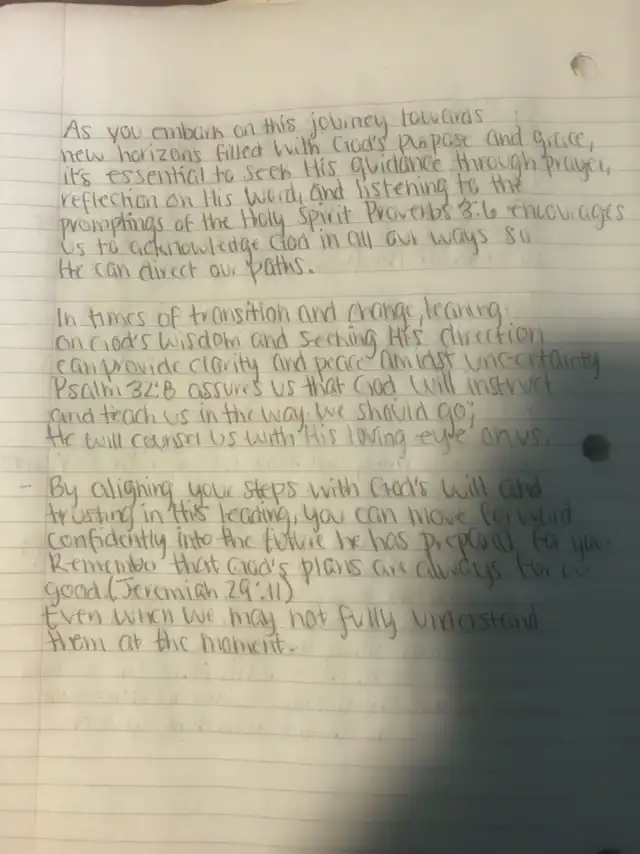 As you embark on this journey towards
new horizons filled with God's purpose and grace,
it's essential to seek His guidance through prayer,
reflection on His Word, and listening to the
promptings of the Holy Spirit Proverbs 3:6 encourages
us to acknowledge God in all our ways so
He can direct our paths.
In times of transition and change, leaning
on God's wisdom and seeking His direction
can provide clarity and peace amidst uncertainty
Psalm 32:8 assures us that God will instruct
and teach us in the way we should go;
He will counsel us with His loving eye on us.
- By aligning your steps with God's will and
trusting in His leading, you can move forward
confidently into the future he has prepared for you
Remember that God's plans are always for our
good (Jeremiah 29:11)
Even when we may not fully understand
them at the moment.